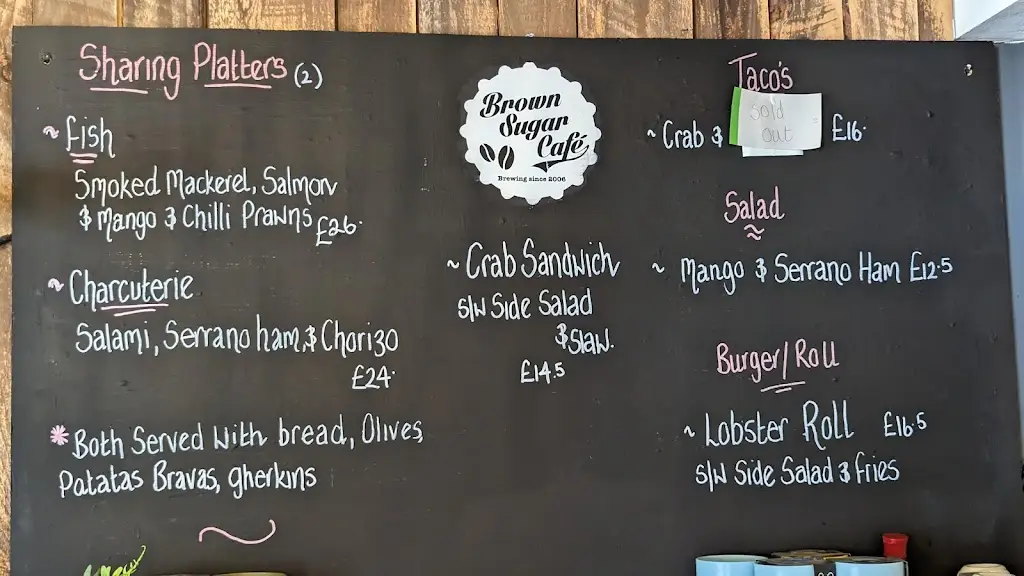 Sharing Platters (2)
~ Fish
Smoked Mackerel, Salmon
& Mango & Chilli Prawns £26.
~ Charcuterie
Salami, Serrano ham, & Chorizo
£24.
* Both Served with bread, Olives,
Patatas Bravas, gherkins
Brown
Sugar
Café
Brewing since 2006
~ Crab Sandwich
S/W Side Salad
& Slaw.
£14.5
Taco's
~ Crab & £16.
Sold
out
Salad
~ Mango & Serrano Ham £12.5
Burger/Roll
~ Lobster Roll £16.5
S/W Side Salad & Fries